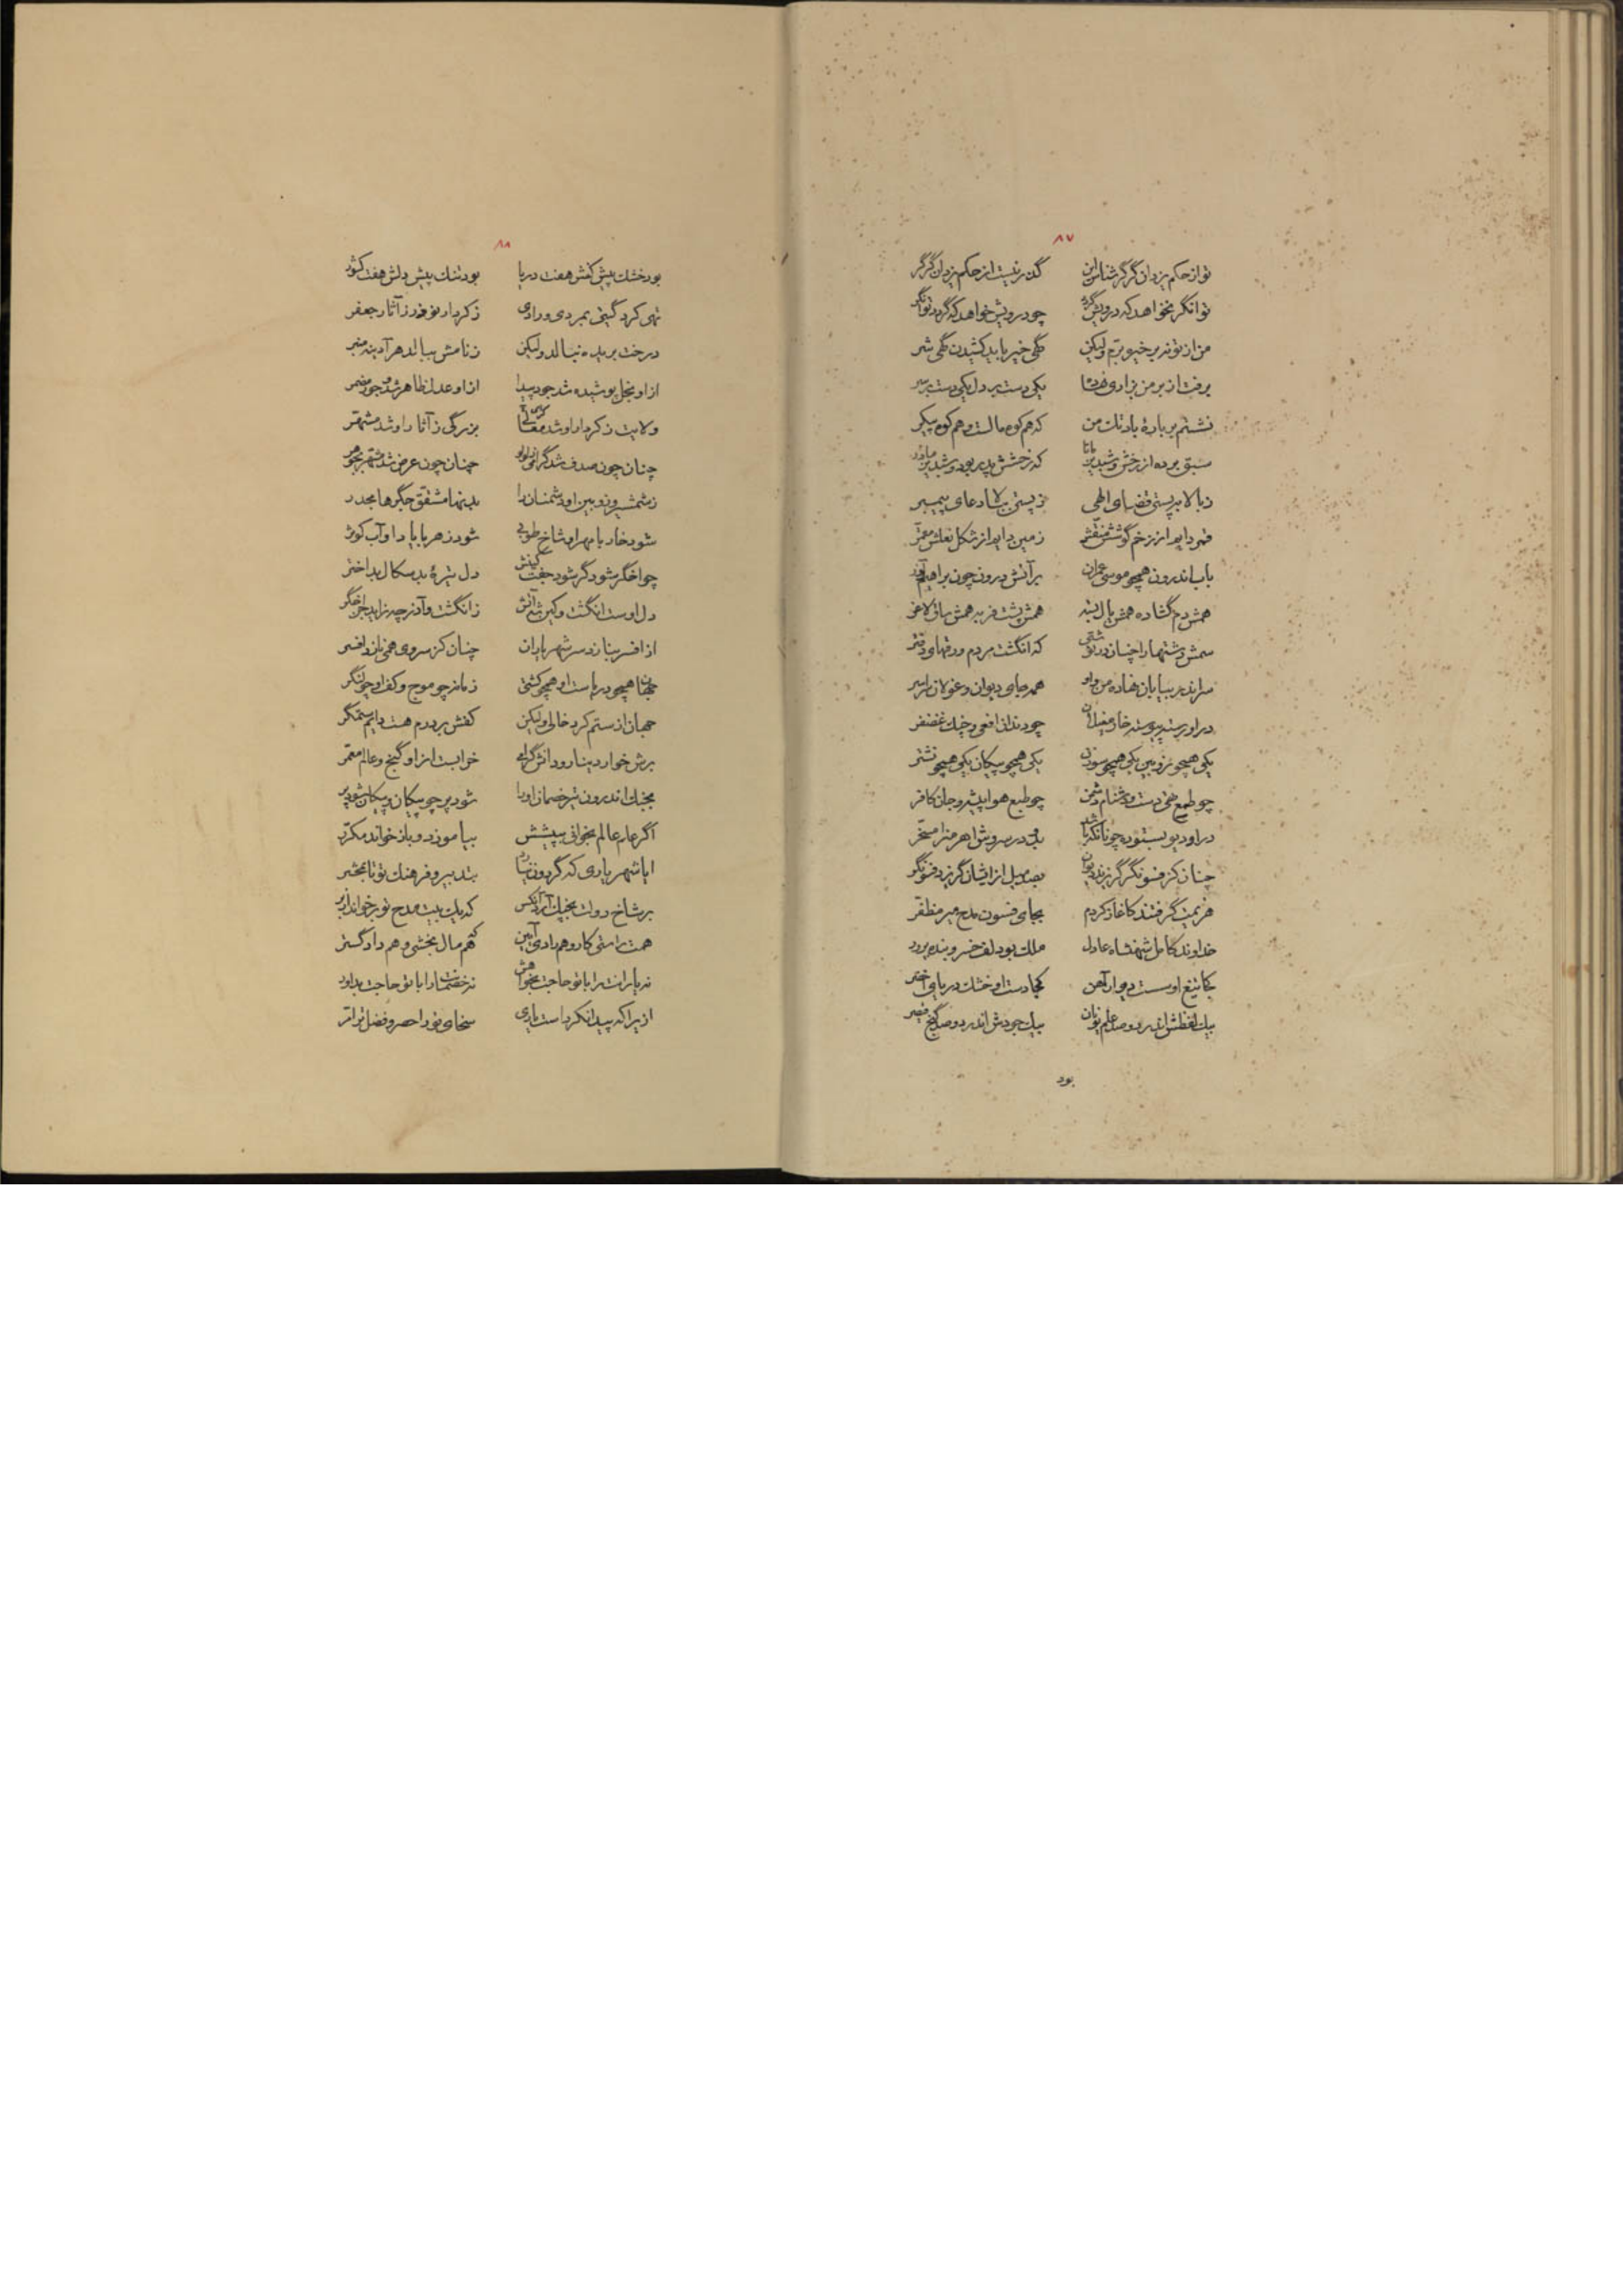 ۸۷
تو از حکم یزدان گرگر شناس این گذر نیست از حکم یزدان گرگر
توانگر نخواهد که درویش گردد چو درویش خواهد که گردد توانگر
من از تو نه بر خیر برّم ولیکن گهی خیر باید کشیدن گهی شر
برفت از بر من بزاری نهاده یکی دست بر دل یکی دست بر سر
نشستم بر بارهٔ بادتک من که هم کوه مالست و هم کوه پیکر
سبق برده از رخش و شبدیز که رخشش پدر بود و شبدیز مادر
ز بالا بپستی قضای الهی ز پستی ببالا دعای پیمبر
قمر دارد از زخم گوشش منقش زمین دارد از شکل نعلش مقمر
بآب اندرون همچو موسی عمران بر آتش درون چون براهیم آزر
همش دم گشاده همش یال بسته همش پشت فربه همش ساق لاغر
سمش دشتها را چنان در نوشتی که انگشت مردم ورقهای دفتر
سر اندر بیابان نهاده من و او همه جای دیوان و غولان سراسر
در او رسته پیوسته خار مغیلان چو دندان افعی و چنگ غضنفر
یکی همچو زوبین یکی همچو سوزن یکی همچو پیکان یکی همچو نشتر
چو طمع تهی دست و دشنام دشمن چو طبع هوا پیشه و جان کافر
در او دیو بستوده چونانکه با بدر سروش اهرمن را مسخر
چنان کز فسونگر گریزند دیوان بصد میل از ایشان گریزد فسونگر
هزیمت گرفتند کآغاز کردم بجای فسون مدح میر مظفر
خداوند کامل شهنشاه عادل ملک بودلف خسرو بنده پرور
کجا تیغ او سست دیوار آهن کجا دست او خشک دریای اخضر
بیک لفظش اندر دو صد علم توان بیک جودش اندر دو صد گنج مضمر
بود
۸۸
بود خشک پیش کفش هفت دریا بود تنگ پیش دلش هفت کشور
تهی کرد گیتی بمردی و رادی ز کردار نوذر ز آثار جعفر
درخت بریده نبالد ولیکن ز نامش ببالد هر آدینه منبر
از او بخل پوشیده شد جود پیدا از او عدل ظاهر شد و جور مضمر
ولایت ز کردار او شد معالی بزرگی ز آثار او شد مشهر
چنان چون صدف شد گرامی بلولو چنان چون عرض شد مشهر بجوهر
ز شمشیر و زوبین او دشمنان را بدنها مشقق جگرها مجدر
شود خار با مهر او شاخ طوبی شود زهر با یاد او آب کوثر
چو اخگر شود گر شود جفت کینش دل تیرهٔ بدسکال بداختر
دل اوست انگشت و کینش آتش ز انگشت و آذر چه زاید جز اخگر
از افسر بنازد سر شهریاران چنان کز سر وی همی نازد افسر
جهان همچو دریاست او همچو کشتی زمانه چو موج و کف او چو لنگر
جهان از ستم کرد خالی ولیکن کفش بر درم هست دایم ستمگر
برش خوار دینار و دانش گرامی خرابست از او گنج و عالم معمر
بجنگ اندرون تیر خصمان او را شود پر چو پیکان و پیکان شود پر
اگر علم عالم بخوانی بپیشش بیاموزد و باز خواند مکرر
ایا شهریاری که گردون نیارد بتدبیر و فرهنگ تو تا بمحشر
بر شاخ دولت بچنگ آرد آنکس که یک بیت مدح تو بر خواند از بر
همت راستی کار و هم رادی آیین هم مال بخشی و هم دادگستر
نه یارانت را با تو حاجت بخواهش نه خصمانت را با تو حاجت بداور
ازیرا که پیدا نکرد است باری سخای تو را حصر و فضل ترا مر